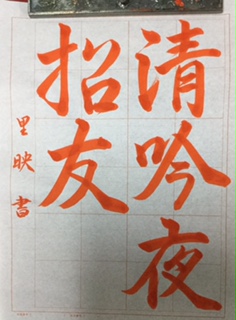 清吟夜
招友
里映書